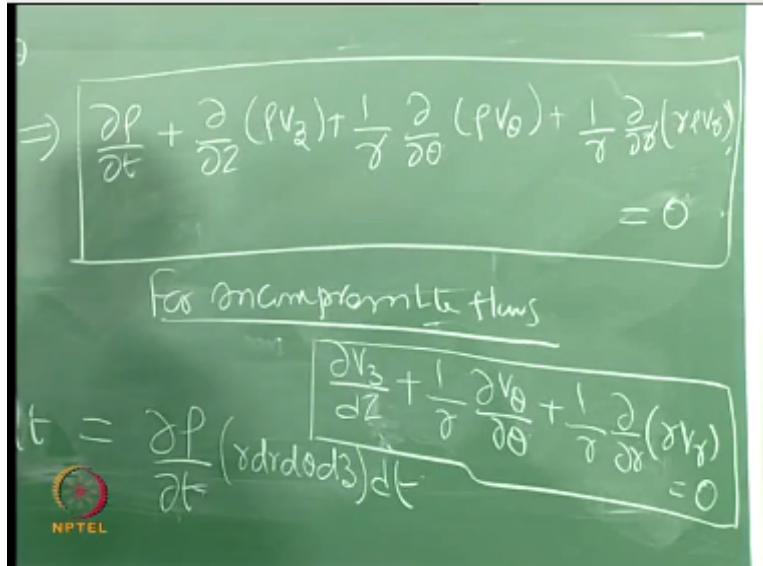 ⇒ ∂ρ/∂t + ∂/∂z (ρV_z) + 1/r ∂/∂θ (ρV_θ) + 1/r ∂/∂r (rρV_r)
= 0
For incompressible flows
∂V_z/dz + 1/r ∂V_θ/∂θ + 1/r ∂/∂r (rV_r)
= 0
dt = ∂ρ/∂t (r dr dθ dz) dt
NPTEL